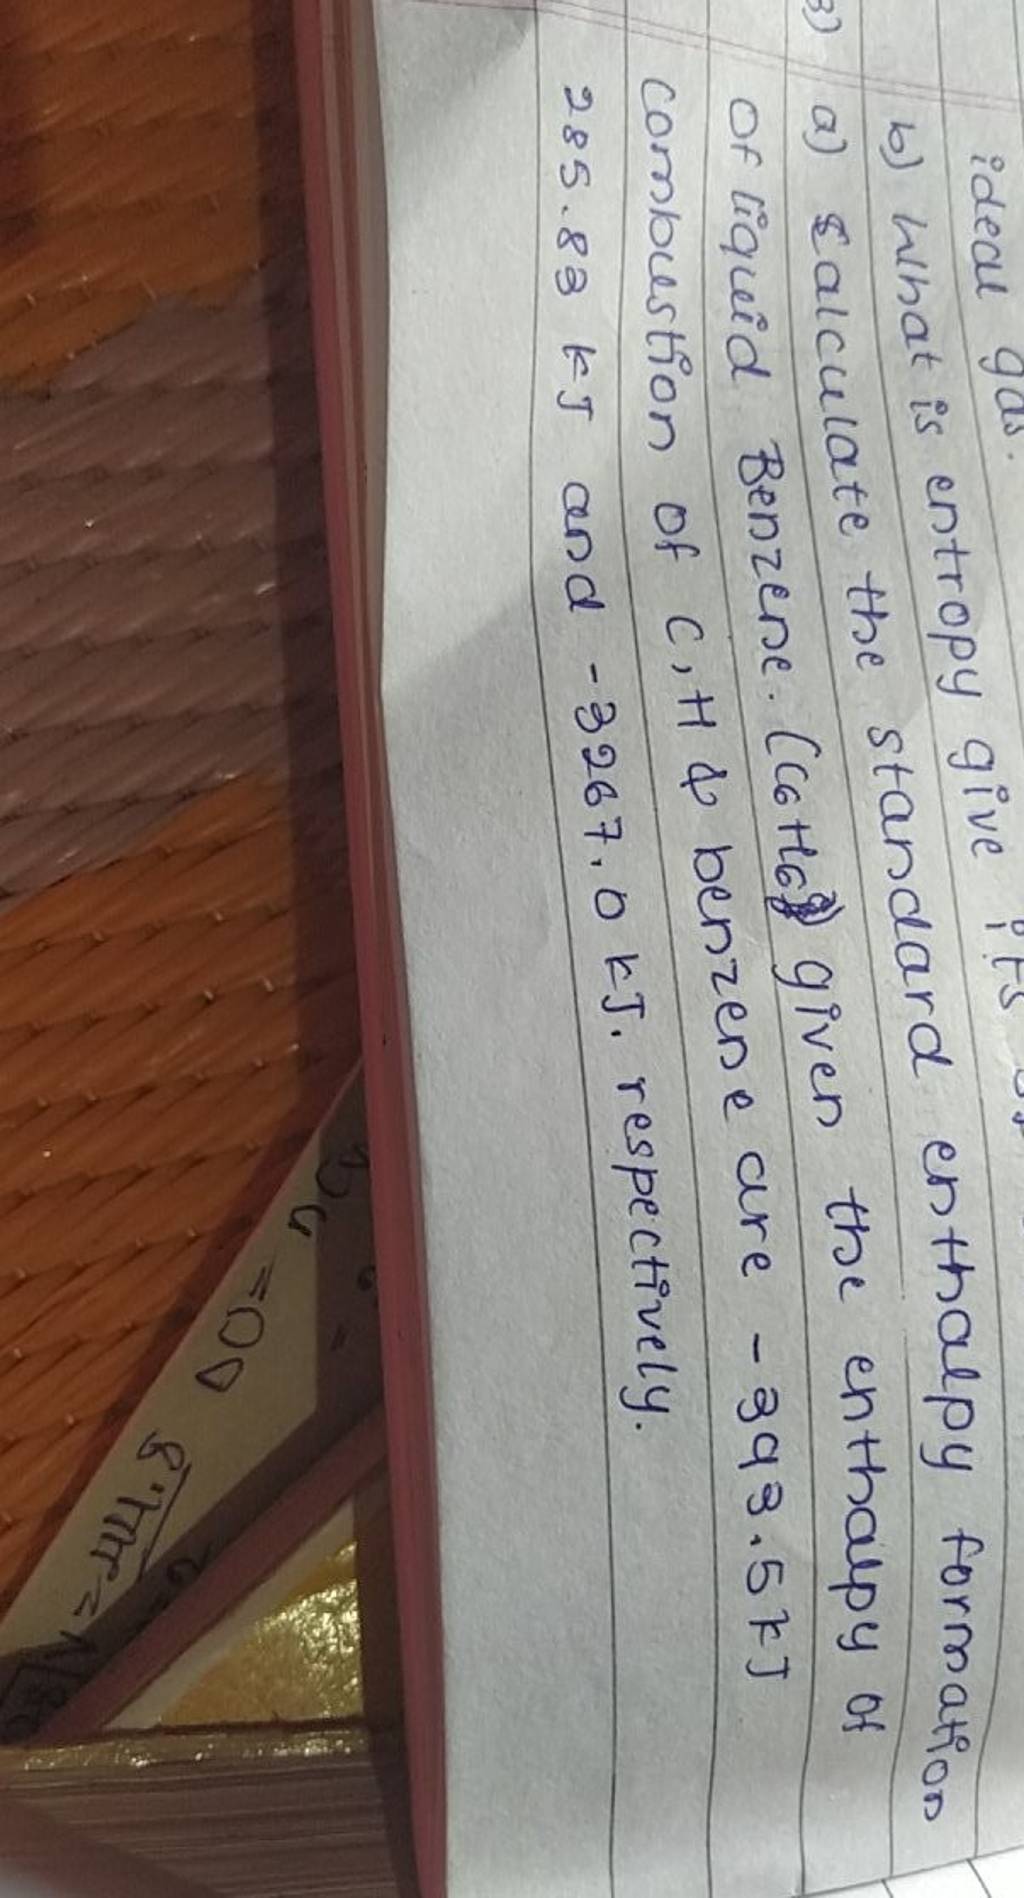 ideal gas.
b) What is entropy give its
3) a) Calculate the standard enthalpy formation
of liquid Benzene. (C6H6) given the enthalpy of
combustion of C, H & benzene are -393.5 kJ
285.83 kJ and -3267.0 kJ. respectively.